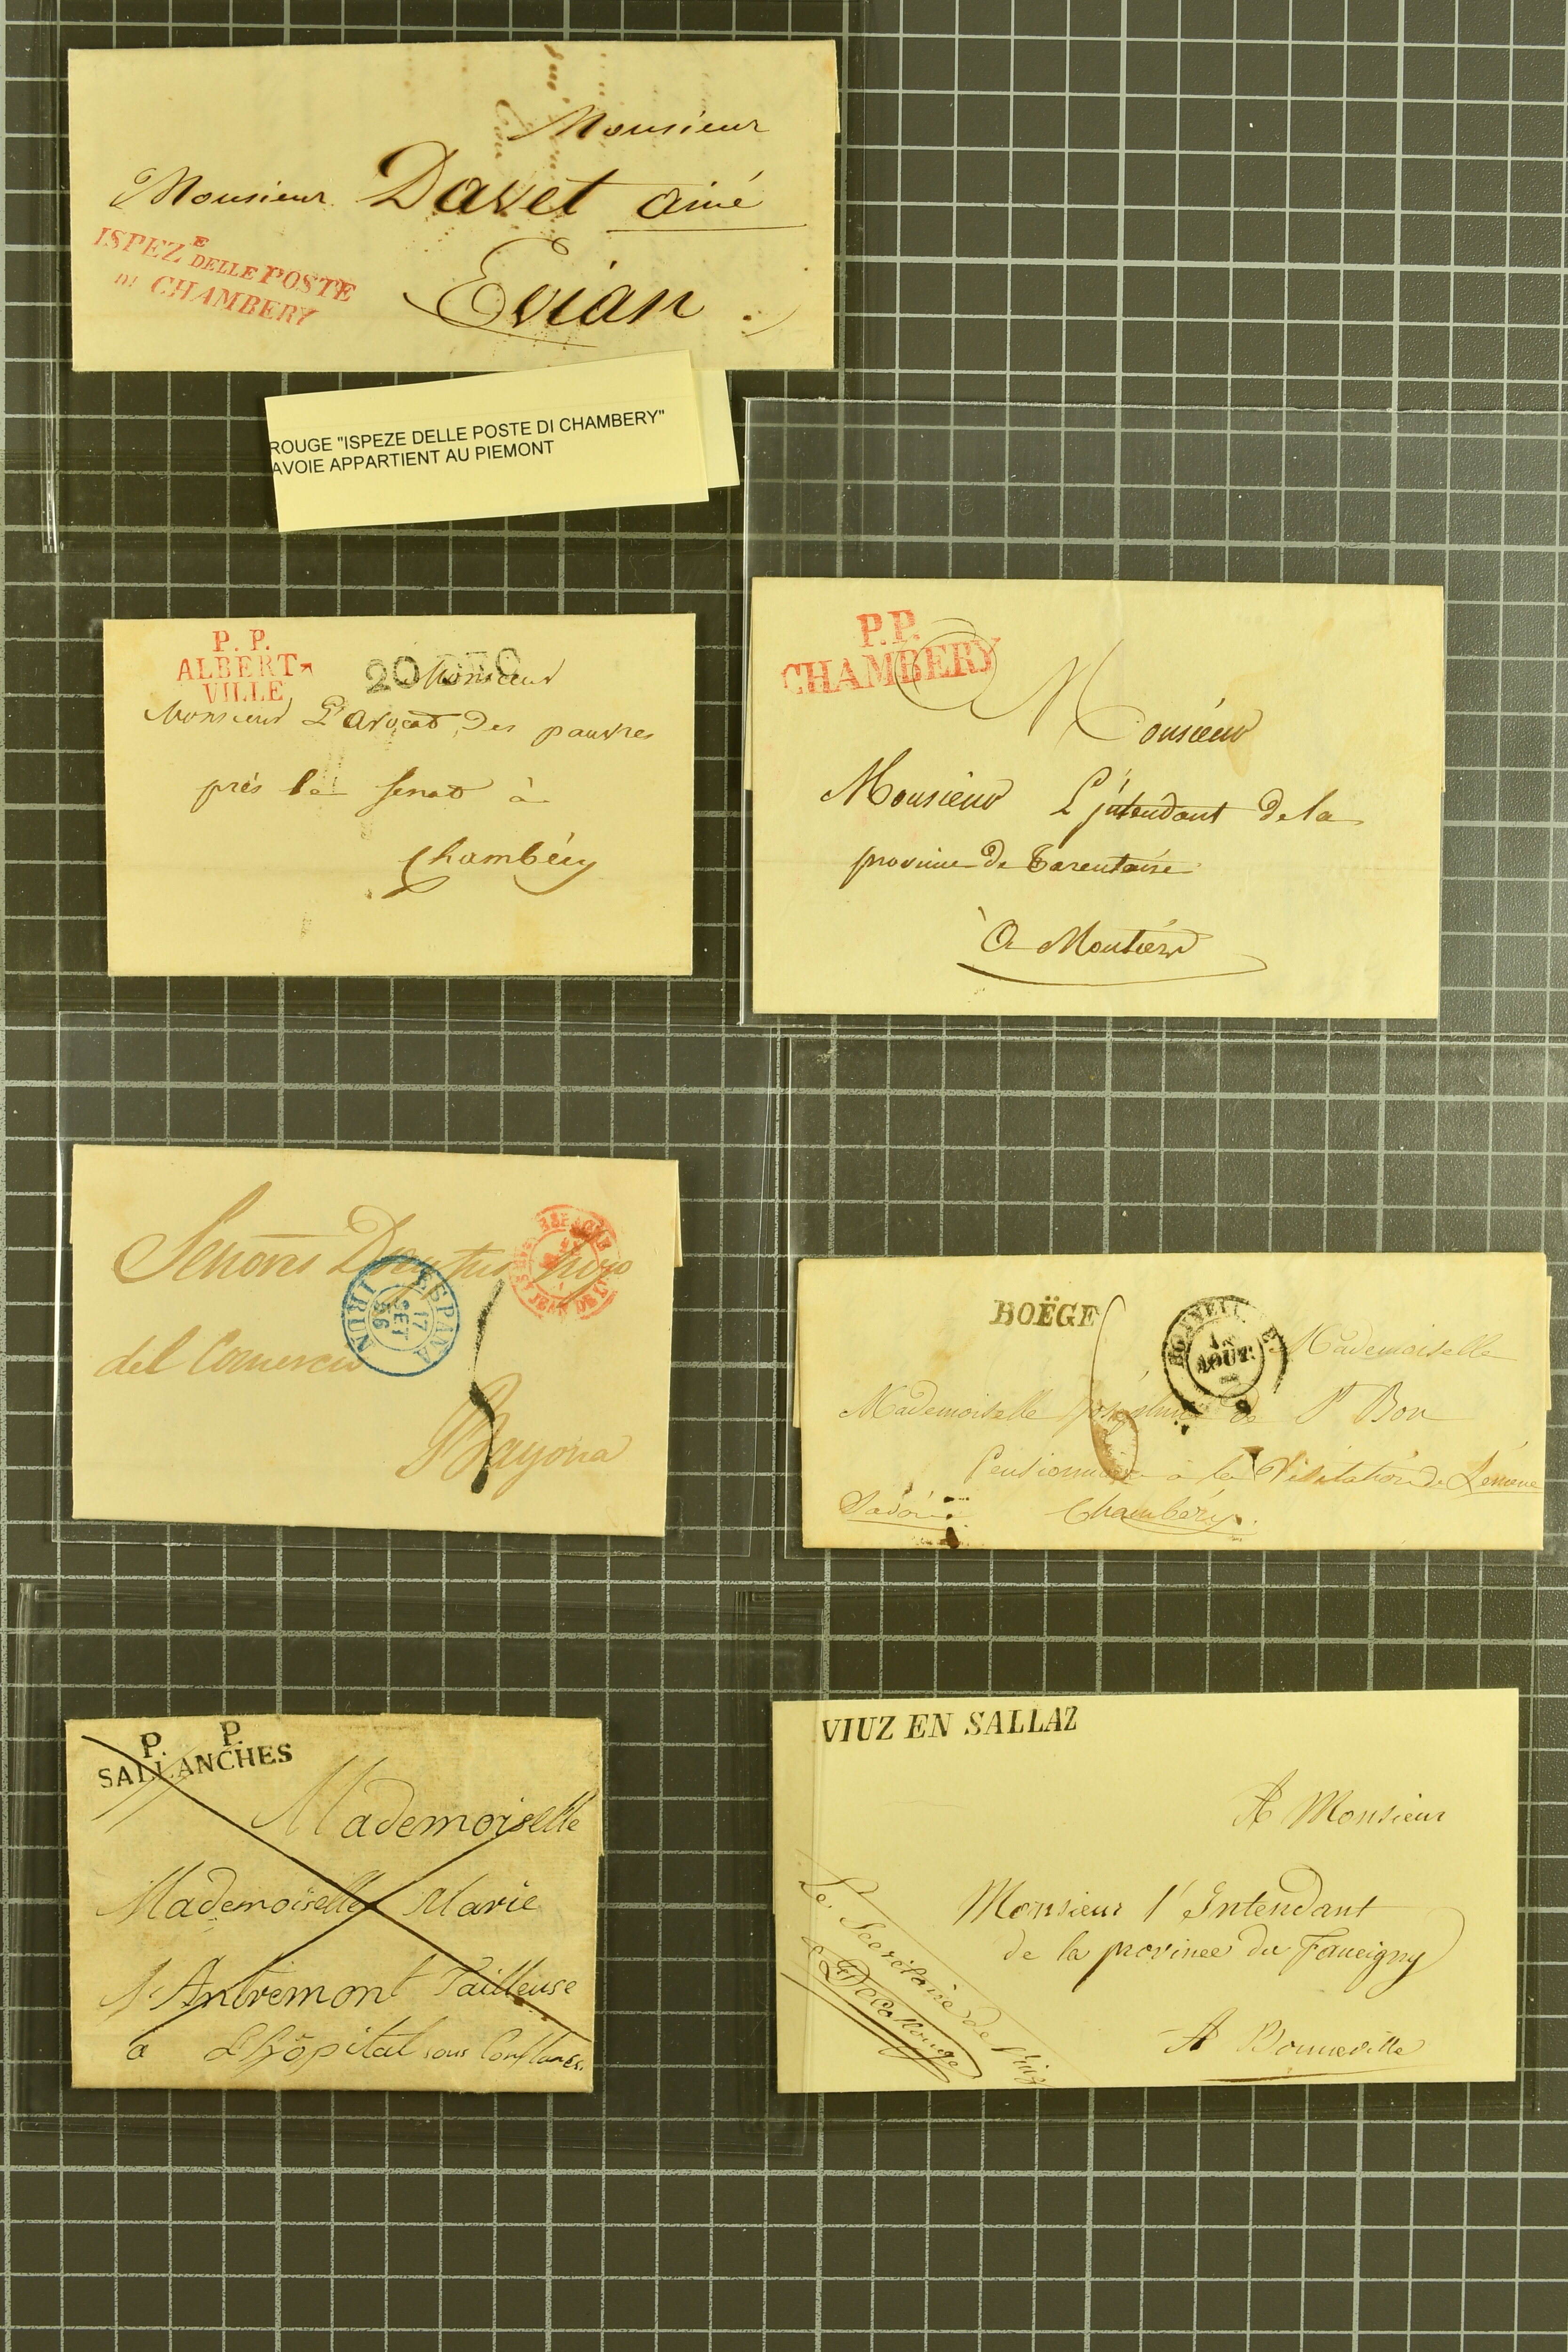 Monsieur
Monsieur Davet ainé
Evian
ISPEZ.E DELLE POSTE
DI CHAMBERY
ROUGE "ISPEZE DELLE POSTE DI CHAMBERY"
AVOIE APPARTIENT AU PIEMONT
P. P.
ALBERT
VILLE
20 DEC
Monsieur
Monsieur L'avocat des pauvres
près le Senat à
Chambéry
P.P.
CHAMBERY
Monsieur
Monsieur L'jntendant de la
province de Tarentaise
à Moutiers
Señores hijo
del Comercio
Bayona
ESPAÑA
17
SET
56
IRUN
ESPAGNE
ST JEAN DE LUZ
BOËGE
BONNEVILLE
AOUT
Mademoiselle
Mademoiselle Joséphine de St Bon
Pensionnaire à la Visitation de Lémenc
Savoie Chambéry.
P. P.
SALLANCHES
Mademoiselle
Mademoiselle Marie
Antremont Tailleuse
à L'hôpital sous Conflans.
VIUZ EN SALLAZ
A Monsieur
Monsieur l'Intendant
de la province du Faucigny
A Bonneville
Le Secrétaire de Viuz